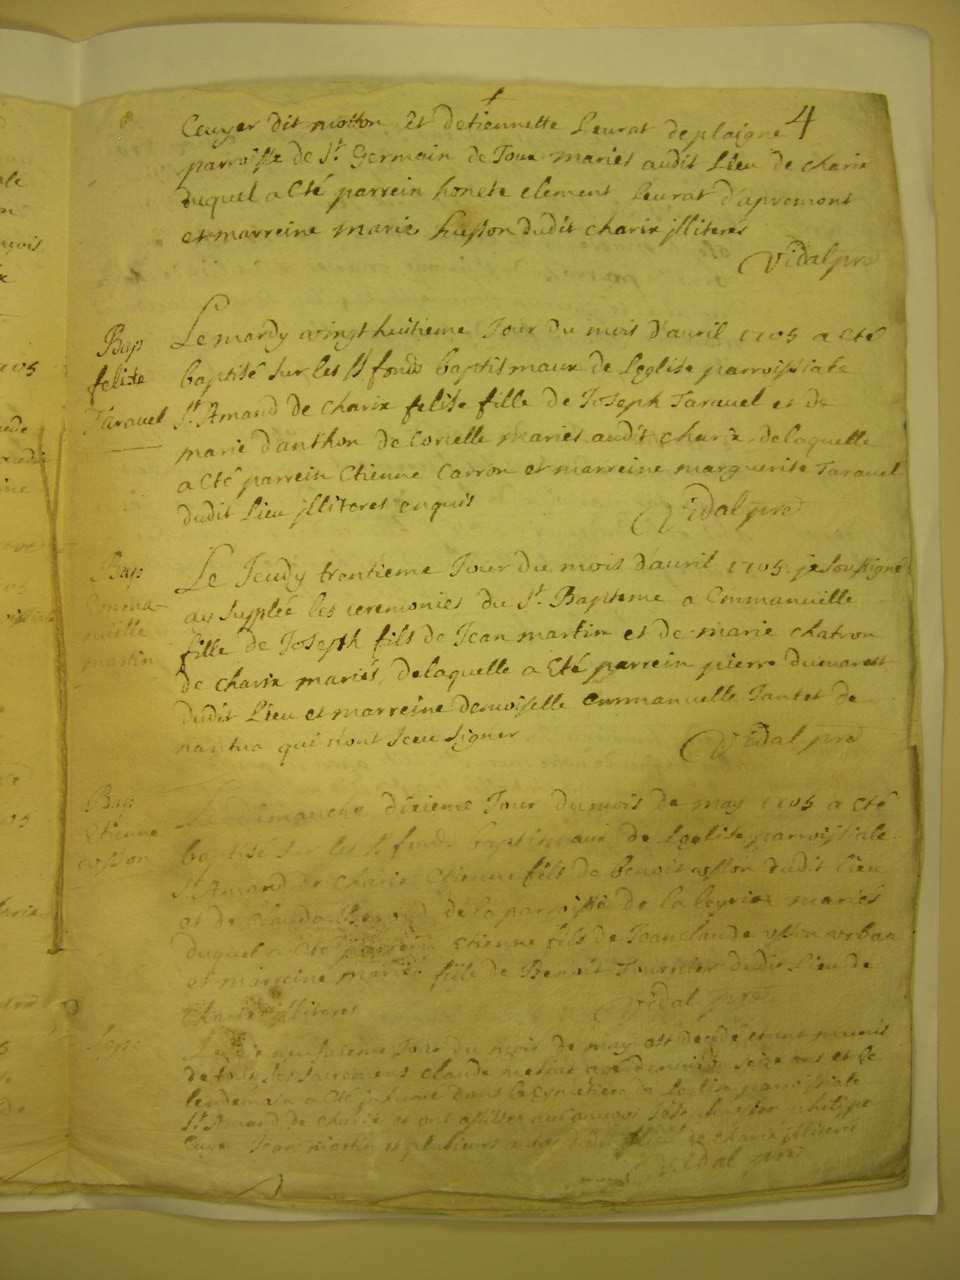 4
Cuyer dit motton et detiennette Leurat de plaigne
parroisse de St Germain de Joux mariés audit Lieu de charix
duquel a Eté parrein honete clement Leurat d'apremont
et marreine marie husson dudit charix jlliterés
Vidal pre
Bap
felise
Taravel
Le mardy vingt huitieme Jour du mois d'avril 1705 a eté
baptisé sur les SS fonds baptismaux de Leglise parroissiale
St Amand de charix felise fille de Joseph Taravel et de
marie danthon de mariés audit charix, delaquelle
a eté parrein Etienne Carron et marreine marguerite Taravel
dudit Lieu jlliteres enquis
Vidal pre
Bap:
Emma-
nuelle
martin
Le Jeudy trentieme Jour du mois d'avril 1705 je soussigné
ay supplée les ceremonies du St Bapteme a Emmanuelle
fille de Joseph fils de Jean martin et de marie chatron
de charix mariés, delaquelle a Eté parrein pierre dumarest
dudit Lieu et marreine demoiselle emmanuelle Jantet de
nantua qui n'ont sceu signer
Vidal pre
Bap:
Etienne
Le Dimanche dixieme Jour du mois de may 1705 a eté
baptisé sur les SS fonds baptismaux de Leglise parroissiale
St Amand de charix Etienne fils de benoit dudit lieu
et de de la parroisse de mariés
duquel a eté parrein Etienne fils de Jean claude
et marreine marie fille de Benoit Tournier dudit Lieu de
charix jlliteres
Vidal pre
Sep:
Jour du mois de may est decedé etant munis
de tous ses sacremens claude seize ans et le
lendemain a eté inhumé dans le cymetiere de Leglise parroissiale
St Amand de charix et ont assistes philippe
Cuyer Jean martin et plusieurs de charix jlliteres
Vidal pre